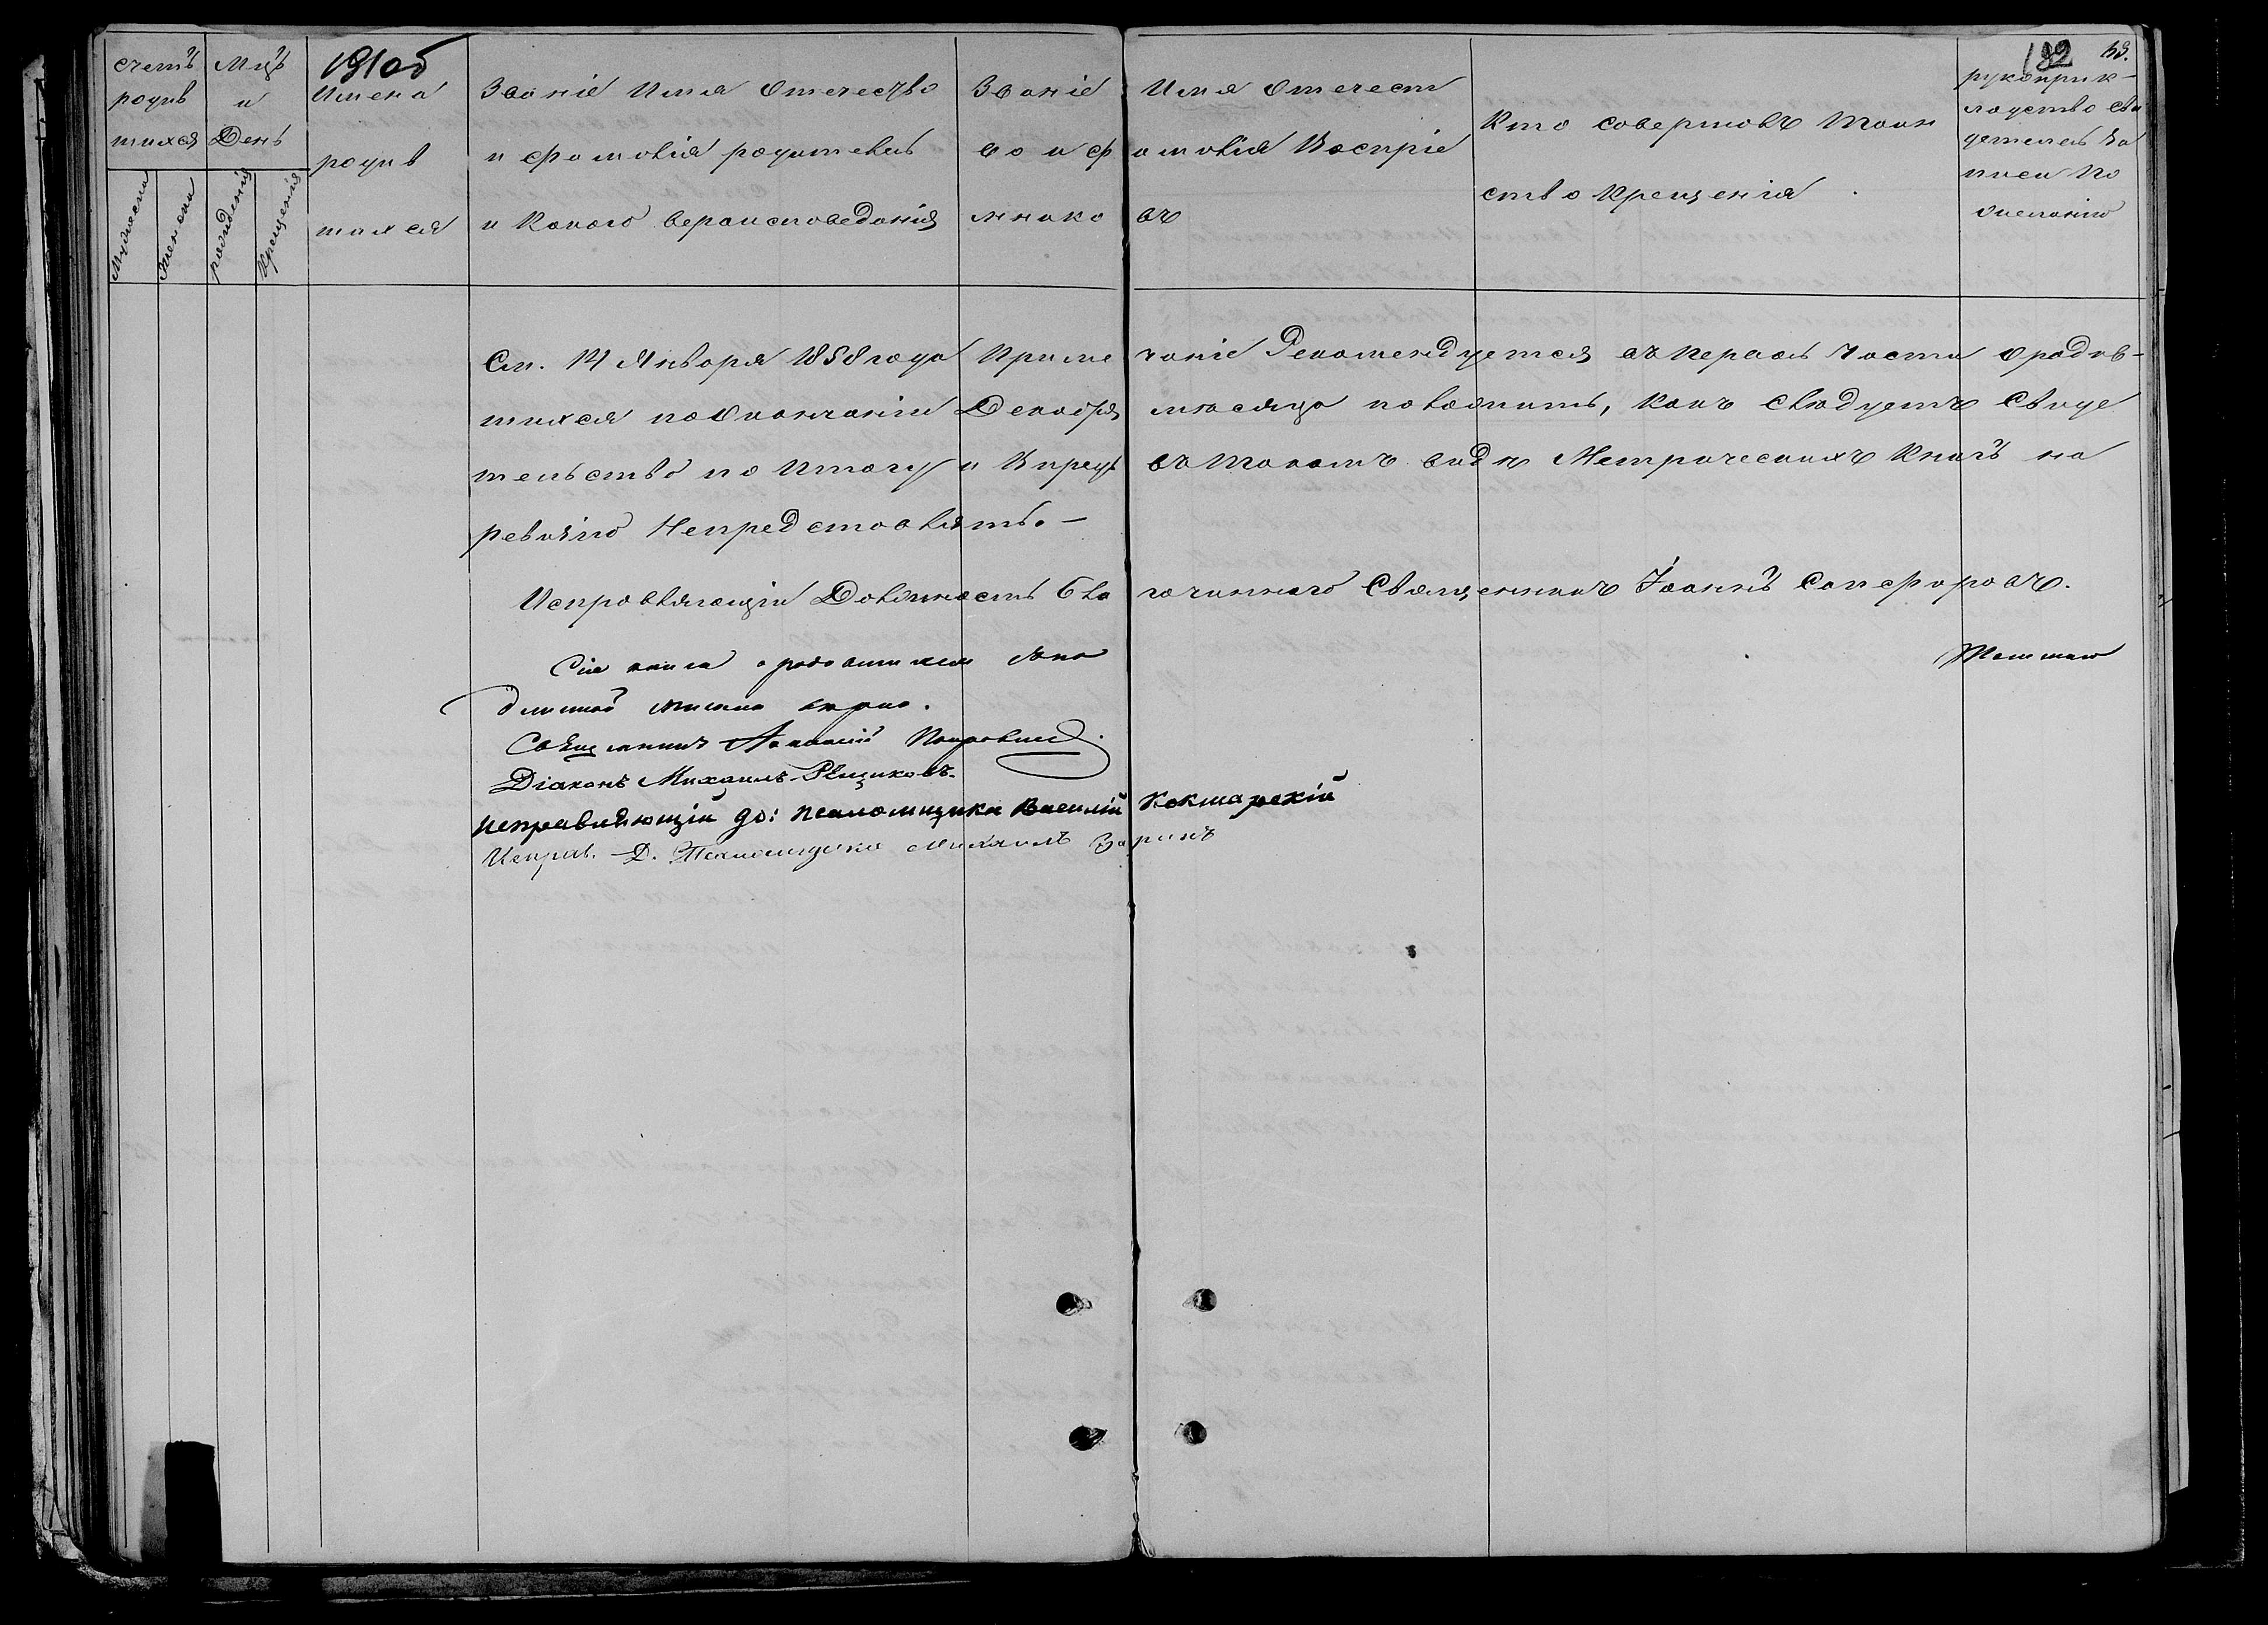 191об
182 63.
счетъ родив шихся
Мцъ и День
Имена родив шихся
Званiе Имя Отечество и фамилiя родителей и какого вероисповеданiя
Званiе Имя Отечест во и фамилiя Воспрiе мнико въ
Кто совершалъ Таин ство Крещенiя
рукоприк- ладство сви детелей за писи по желанiю
Мужеска
Женска
рожденiя
Крещенiя
См. 14 Января 1858 года Приме чанiе Рекомендуется въ первой части о родив-
шихся по окончанiи Декабря месяца поволнить, какъ следуетъ Свиде
тельство по Итогу и Впредь въ такомъ виде Метрическихъ Книгъ на
ревизiю Непредставлять. —
Исправляющiй Должность Бла гочиннаго Священникъ Iоаннъ Сапфировъ.
Сiя книга о родившихся съ по
длинной верна.
Священникъ Покровскiй.
Дiаконъ Михаилъ Рѣщиковъ.
Исправляющiй до: псаломщика Василiй Кокшарскiй
Исправ. Д. Псаломщика Михаилъ Заринъ